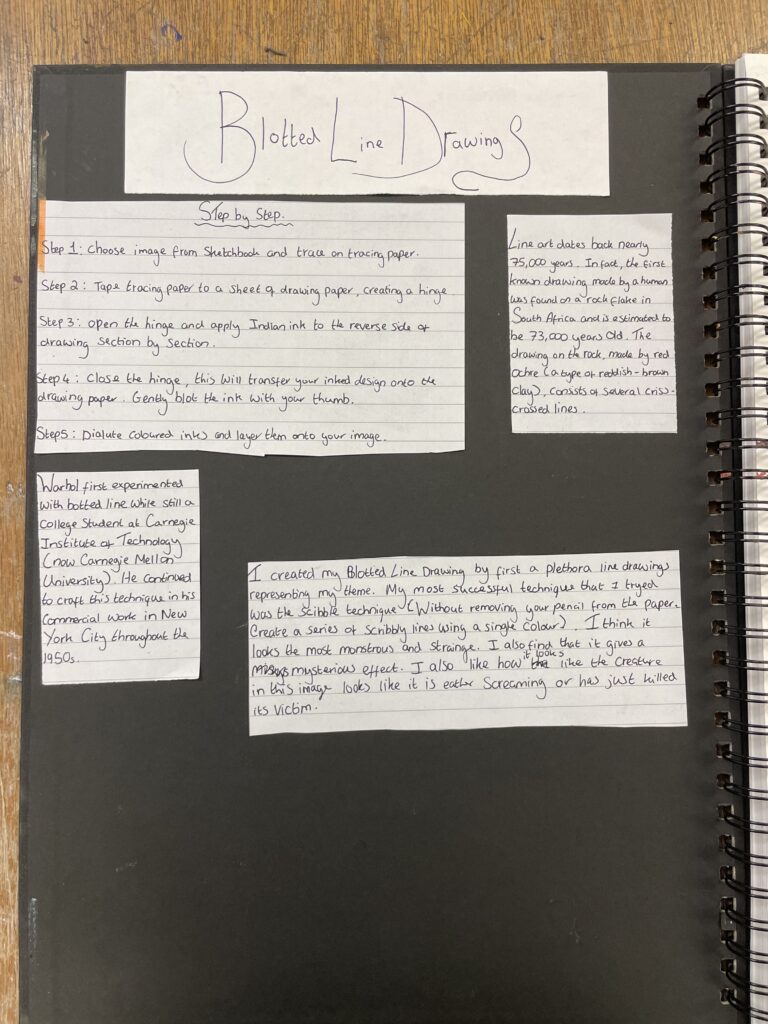 Blotted Line Drawings
Step by Step.
Step 1: Choose image from Sketchbook and trace on tracing paper.
Step 2: Tape tracing paper to a sheet of drawing paper, creating a hinge
Step 3: open the hinge and apply Indian ink to the reverse side of
drawing section by section.
Step 4: Close the hinge, this will transfer your inked design onto the
drawing paper. Gently blot the ink with your thumb.
Step 5: Dialute coloured inks and layer them onto your image.
Line art dates back nearly
75,000 years. In fact, the first
known drawing made by a human
was found on a rock flake in
South Africa and is estimated to
be 73,000 years Old. The
drawing on the rock, made by red
ochre (a type of reddish-brown
clay), consists of several criss-
crossed lines.
Warhol first experimented
with botted line while still a
College Student at Carnegie
Institute of Technology
(now Carnegie Mellon
University). He continued
to craft this technique in his
Commercial work in New
York City throughout the
1950s.
I created my Blotted Line Drawing by first a plethora line drawings
representing my theme. My most successful technique that I tryed
was the scibble technique (Without removing your pencil from the paper.
Create a series of Scribbly lines using a single colour). I think it
looks the most monstrous and strainge. I also find that it gives a
mysterious effect. I also like how it looks like the Creature
in this image looks like it is eather Screaming or has just killed
its victim.